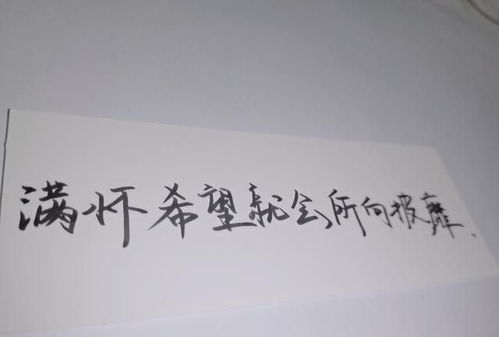 满怀希望就会所向披靡、